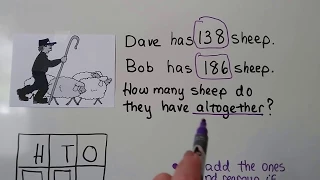 Dave has 138 sheep.
Bob has 186 sheep.
How many sheep do
they have altogether?
H T O
add the ones
and regroup if